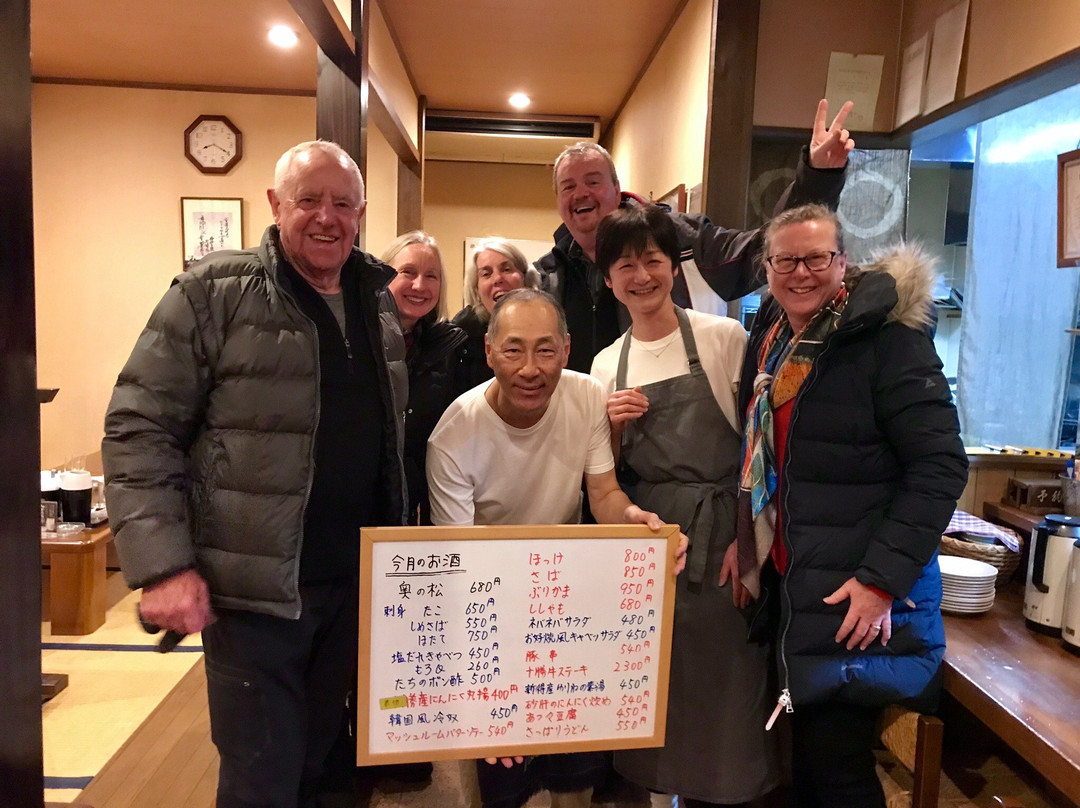 今月のお酒
奥の松 680円
刺身 たこ 650円
しめさば 550円
ほたて 750円
塩だれきゃべつ 450円
もろQ 260円
たちのポン酢 500円
産にんにく丸揚 400円
韓国風冷奴 450円
マッシュルームバターソテー 540円
ほっけ 800円
さば 850円
ぶりかま 950円
ししゃも 680円
ネバネバサラダ 480円
お好焼風キャベツサラダ 450円
豚串 540円
十勝牛ステーキ 2300円
新得産ゆりねの素揚 450円
砂肝のにんにく炒め 540円
あつマ豆腐 450円
さっぱりうどん 550円
予約